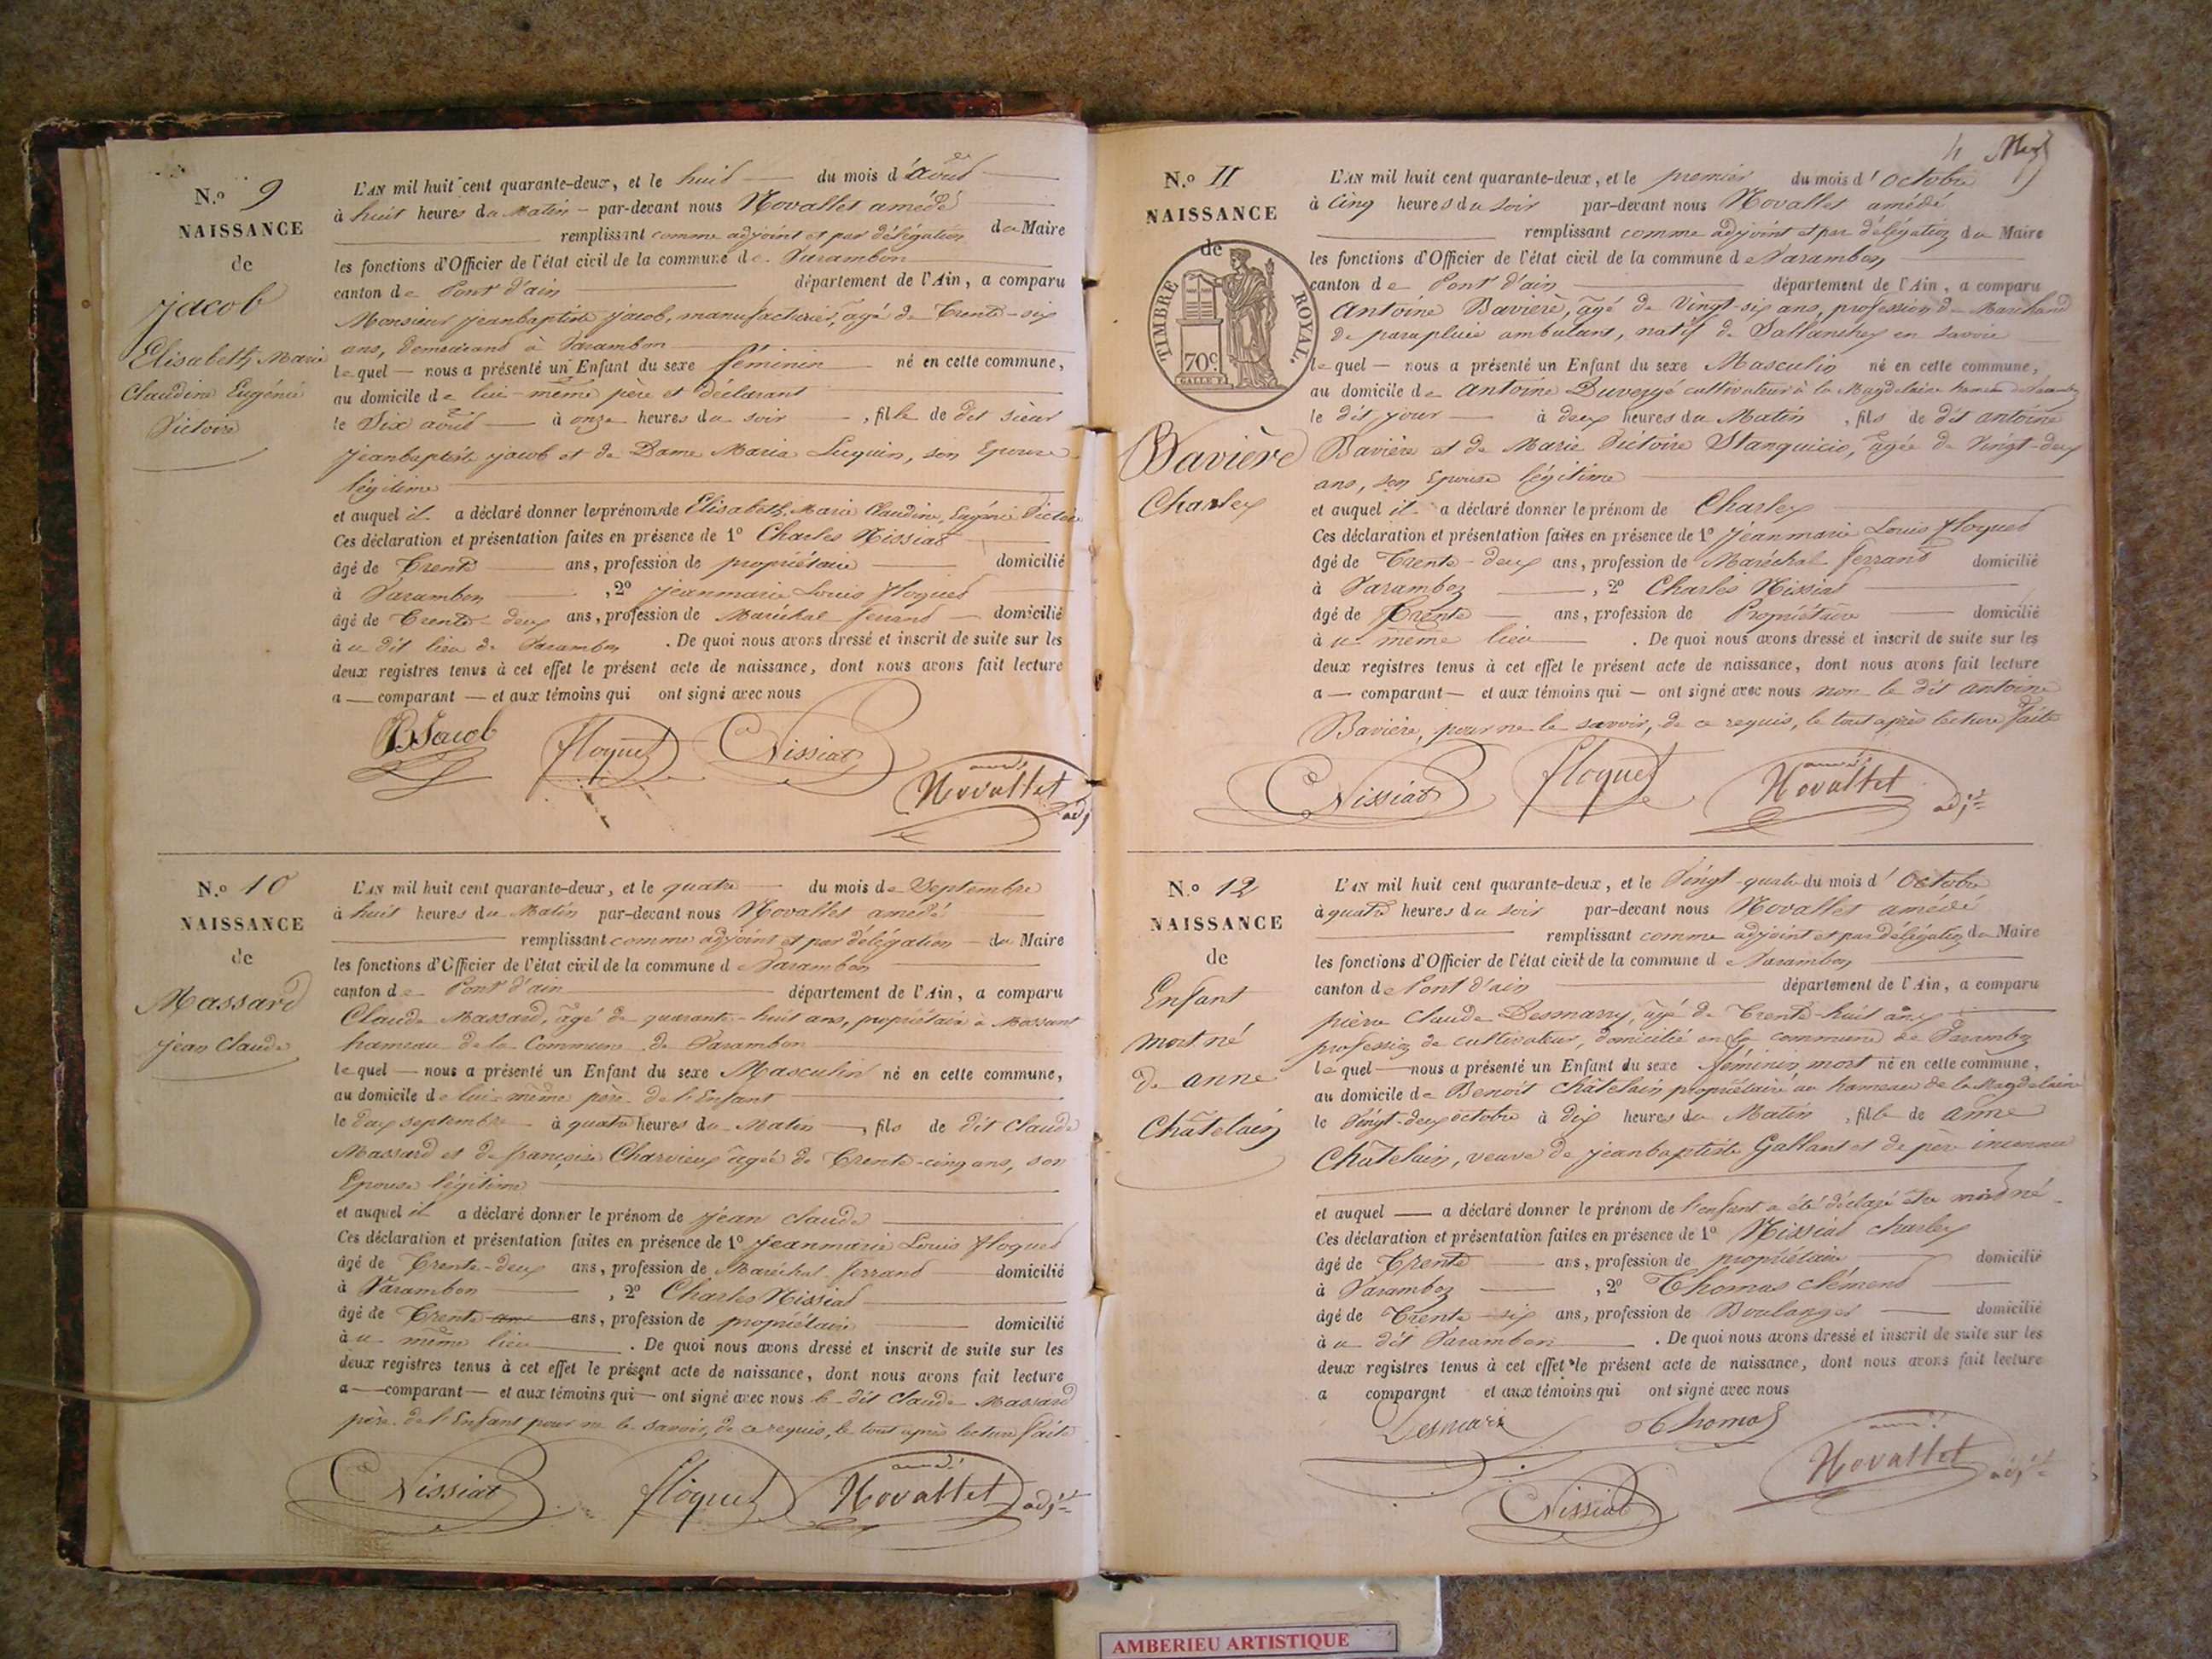 N.º 9
NAISSANCE
de
Jacob
Elisabeth Marie
Claudine Eugénie
Victoire
L'AN mil huit cent quarante-deux, et le huit du mois d'août
à huit heures du Matin par-devant nous Novallet amédé
remplissant comme adjoint et par délégation du Maire
les fonctions d'Officier de l'état civil de la commune de Varambon
canton de Pont d'ain département de l'Ain, a comparu
Monsieur jeanbaptiste jacob, manufacturier, âgé de Trente-six
ans, demeurant à Varambon
lequel nous a présenté un Enfant du sexe féminin né en cette commune,
au domicile de lui-même père et déclarant
le Six août à onze heures du soir, fille de dit sieur
jeanbaptiste jacob et de Dame Maria Luquin, son Epouse
légitime
et auquel il a déclaré donner les prénoms de Elisabeth, Marie Claudine, Eugénie Victoire
Ces déclaration et présentation faites en présence de 1º Charles Nissiat
âgé de Trente ans, profession de propriétaire domicilié
à Varambon, 2º jeanmarie Louis floquet
âgé de Trente-deux ans, profession de Maréchal ferrand domicilié
au dit lieu de Varambon. De quoi nous avons dressé et inscrit de suite sur les
deux registres tenus à cet effet le présent acte de naissance, dont nous avons fait lecture
a comparant et aux témoins qui ont signé avec nous
Jacob floquet CNissiat
amédé
Novallet
adj
N.º 10
NAISSANCE
de
Massard
jean Claude
L'AN mil huit cent quarante-deux, et le quatre du mois de Septembre
à huit heures du Matin par-devant nous Novallet amédé
remplissant comme adjoint et par délégation du Maire
les fonctions d'Officier de l'état civil de la commune de Varambon
canton de Pont d'ain département de l'Ain, a comparu
Claude Massard, âgé de quarante-huit ans, propriétaire à Mossant
hameau de la Commune de Varambon
lequel nous a présenté un Enfant du sexe Masculin né en cette commune,
au domicile de lui-même père de l'Enfant
le deux septembre à quatre heures du Matin, fils de dit Claude
Massard et de françoise Charvieux âgée de Trente-cinq ans, son
Epouse légitime
et auquel il a déclaré donner le prénom de jean claude
Ces déclaration et présentation faites en présence de 1º jeanmarie Louis floquet
âgé de Trente-deux ans, profession de Maréchal ferrand domicilié
à Varambon, 2º Charles Nissiat
âgé de Trente ans, profession de propriétaire domicilié
au même lieu. De quoi nous avons dressé et inscrit de suite sur les
deux registres tenus à cet effet le présent acte de naissance, dont nous avons fait lecture
a comparant et aux témoins qui ont signé avec nous le dit Claude Massard
père de l'Enfant pour ne le savoir, de ce requis, le tout après lecture faite
CNissiat floquet
amédé
Novallet adjt
4
N.º 11
NAISSANCE
de
TIMBRE ROYAL.
70c.
Bavière
Charles
L'AN mil huit cent quarante-deux, et le premier du mois d'Octobre
à Cinq heures du soir par-devant nous Novallet amédé
remplissant comme adjoint et par délégation du Maire
les fonctions d'Officier de l'état civil de la commune de Varambon
canton de Pont d'ain département de l'Ain, a comparu
Antoine Bavière, âgé de Vingt-six ans, profession de Marchand
de parapluie ambulant, natif de Sallanches en savoie
lequel nous a présenté un Enfant du sexe Masculin né en cette commune,
au domicile de antoine Duvergé cultivateur à la Magdelaine hameau de Varambon
le dit jour à deux heures du Matin, fils de dit antoine
Bavière et de Marie Victoire Stanquicio, âgée de Vingt-deux
ans, son Epouse légitime
et auquel il a déclaré donner le prénom de Charles
Ces déclaration et présentation faites en présence de 1º jeanmarie Louis floquet
âgé de Trente-deux ans, profession de Maréchal ferrand domicilié
à Varambon, 2º Charles Nissiat
âgé de Trente ans, profession de Propriétaire domicilié
au même lieu. De quoi nous avons dressé et inscrit de suite sur les
deux registres tenus à cet effet le présent acte de naissance, dont nous avons fait lecture
a comparant et aux témoins qui ont signé avec nous non le dit antoine
Bavière, pour ne le savoir, de ce requis, le tout après lecture faite
CNissiat floquet
amédé
Novallet adjt
N.º 12
NAISSANCE
de
Enfant
mort né
de anne
Châtelain
L'AN mil huit cent quarante-deux, et le Vingt-quatre du mois d'Octobre
à quatre heures du soir par-devant nous Novallet amédé
remplissant comme adjoint et par délégation du Maire
les fonctions d'Officier de l'état civil de la commune de Varambon
canton de Pont d'ain département de l'Ain, a comparu
pierre Claude Desmarry, âgé de Trente-huit ans
profession de cultivateur, domicilié en la commune de Varambon
lequel nous a présenté un Enfant du sexe féminin mort né en cette commune,
au domicile de Benoit Châtelain propriétaire au hameau de la Magdelaine
le Vingt-deux octobre à dix heures du Matin, fille de anne
Châtelain, veuve de jeanbaptiste Galland et de père inconnu
et auquel a déclaré donner le prénom de l'enfant a été déclaré être mort né
Ces déclaration et présentation faites en présence de 1º Nissiat charles
âgé de Trente ans, profession de propriétaire domicilié
à Varambon, 2º Thomas Clément
âgé de Trente-six ans, profession de Boulanger domicilié
au dit Varambon. De quoi nous avons dressé et inscrit de suite sur les
deux registres tenus à cet effet le présent acte de naissance, dont nous avons fait lecture
a comparant et aux témoins qui ont signé avec nous
Desmari Thomas
amédé
Novallet adjt
CNissiat
AMBERIEU ARTISTIQUE